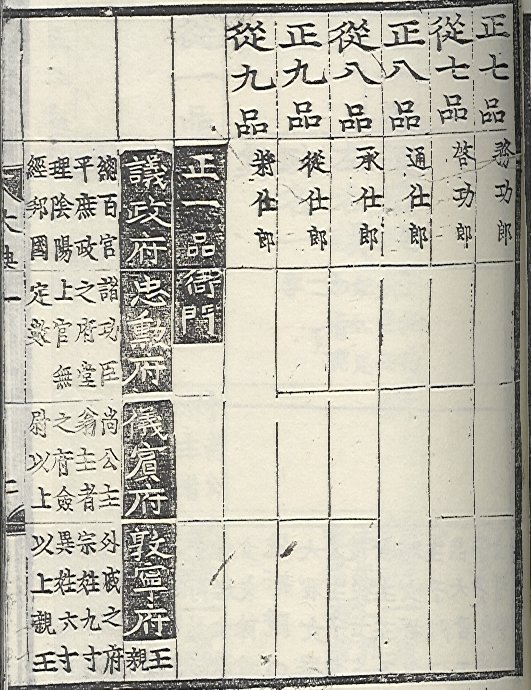 正七品 務功郎
從七品 啓功郎
正八品 通仕郎
從八品 承仕郎
正九品 從仕郎
從九品 將仕郎
正一品衙門
議政府
緫百官
平庶政
理陰陽
經邦國
忠勳府
諸功臣
之府堂
上官無
定數
儀賓府
尚公主
翁主者
之府僉
尉以上
敦寧府 王親
外戚之府
宗姓九寸
異姓六寸
以上親王
大典一